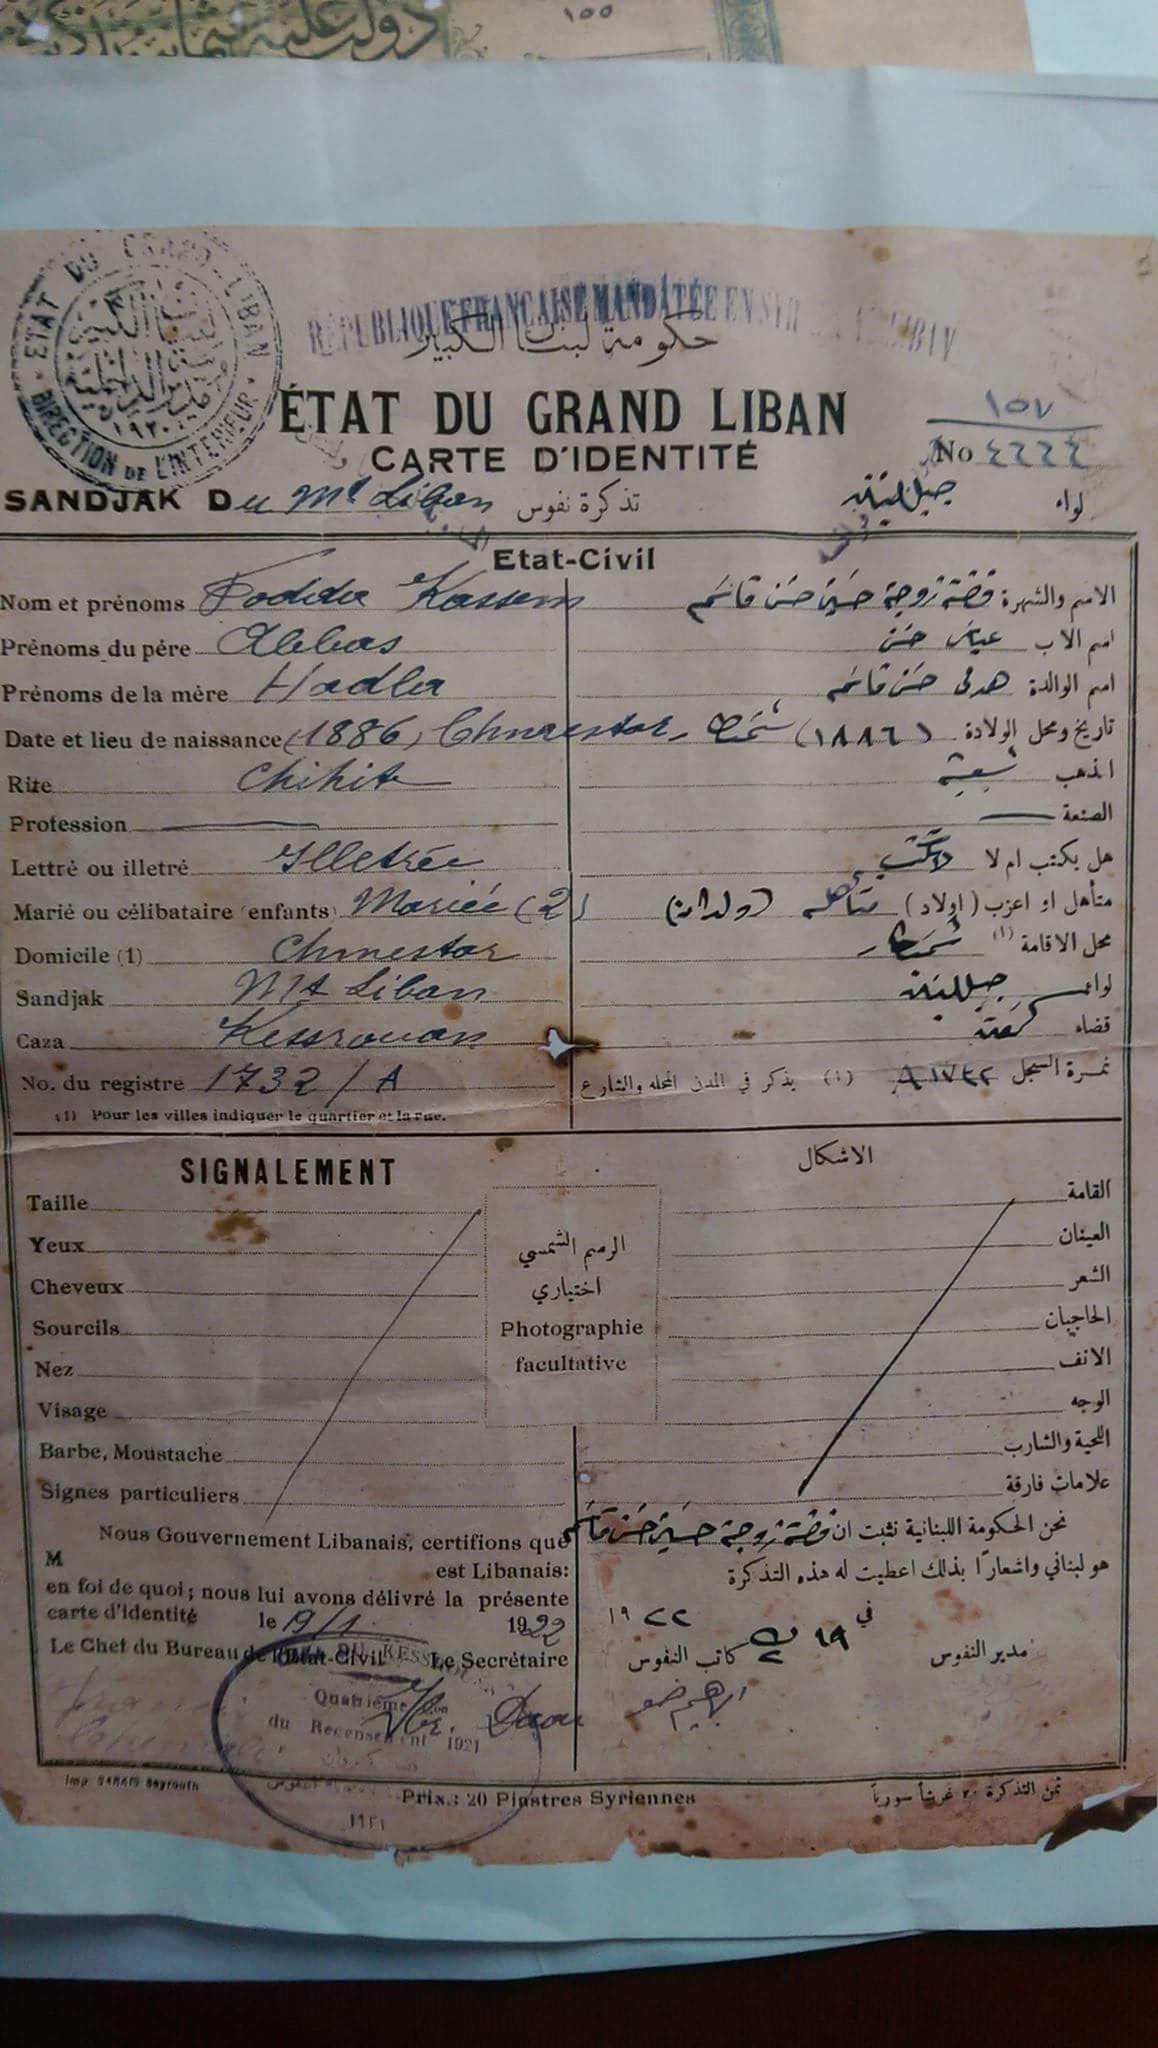 دولت علیه عثمانیه
١٥٥
ETAT DU GRAND LIBAN
DIRECTION DE L'INTERIEUR
١٩٢٠
RÉPUBLIQUE FRANÇAISE MANDATÉE EN
حكومة لبنان الكبير
ÉTAT DU GRAND LIBAN
CARTE D'IDENTITÉ
١٥٧
No ٤٦٦٤
SANDJAK Du Mt Liban تذكرة نفوس لواء جبل لبنان
Etat-Civil
Nom et prénoms Fodda Kassem
الاسم والشهرة فضة زوجة حسين حسن قاسم
Prénoms du père Abbas
اسم الاب عباس حسن
Prénoms de la mère Hadla
اسم الوالدة هدلى حسن قاسم
Date et lieu de naissance (1886) Chmestar
تاريخ ومحل الولادة (١٨٨٦) شمسطار
Rite Chihite
المذهب شيعية
Profession —
الصنعة —
Lettré ou illetré Illetrée
هل يكتب ام لا لا تكتب
Marié ou célibataire (enfants) Mariée (2)
متأهل او اعزب (اولاد) متأهلة (ولدان)
Domicile (1) Chmestar
محل الاقامة (١) شمسطار
Sandjak Mt Liban
لواء جبل لبنان
Caza Kessrouan
قضاء
No. du registre 1732 / A
نمرة السجل ١٧٣٢ A (١) يذكر في المدن المحله والشارع
(1) Pour les villes indiquer le quartier et la rue.
SIGNALEMENT
الاشكال
Taille
القامة
Yeux
العينان
Cheveux
الشعر
Sourcils
الحاجبان
Nez
الانف
Visage
الوجه
Barbe, Moustache
اللحية والشارب
Signes particuliers
علامات فارقة
الرسم الشمسي
اختياري
Photographie
facultative
Nous Gouvernement Libanais, certifions que
M est Libanais:
en foi de quoi; nous lui avons délivré la présente
carte d'identité le 19/1 1922
Le Chef du Bureau de l'Etat-Civil Le Secrétaire
نحن الحكومة اللبنانية نثبت ان فضة زوجة حسين حسن قاسم
هو لبناني واشعارًا بذلك اعطيت له هذه التذكرة
في ١٩ ك٢ ١٩٢٢
مدير النفوس كاتب النفوس
ابرهيم ضو
Ibr. Daou
DU KESSROUAN
Quatrième
du Recensement 1921
كسروان
النفوس
١٩٢١
Imp. SARKIS Beyrouth
Prix : 20 Piastres Syriennes
ثمن التذكرة ٢٠ غرشاً سورياً